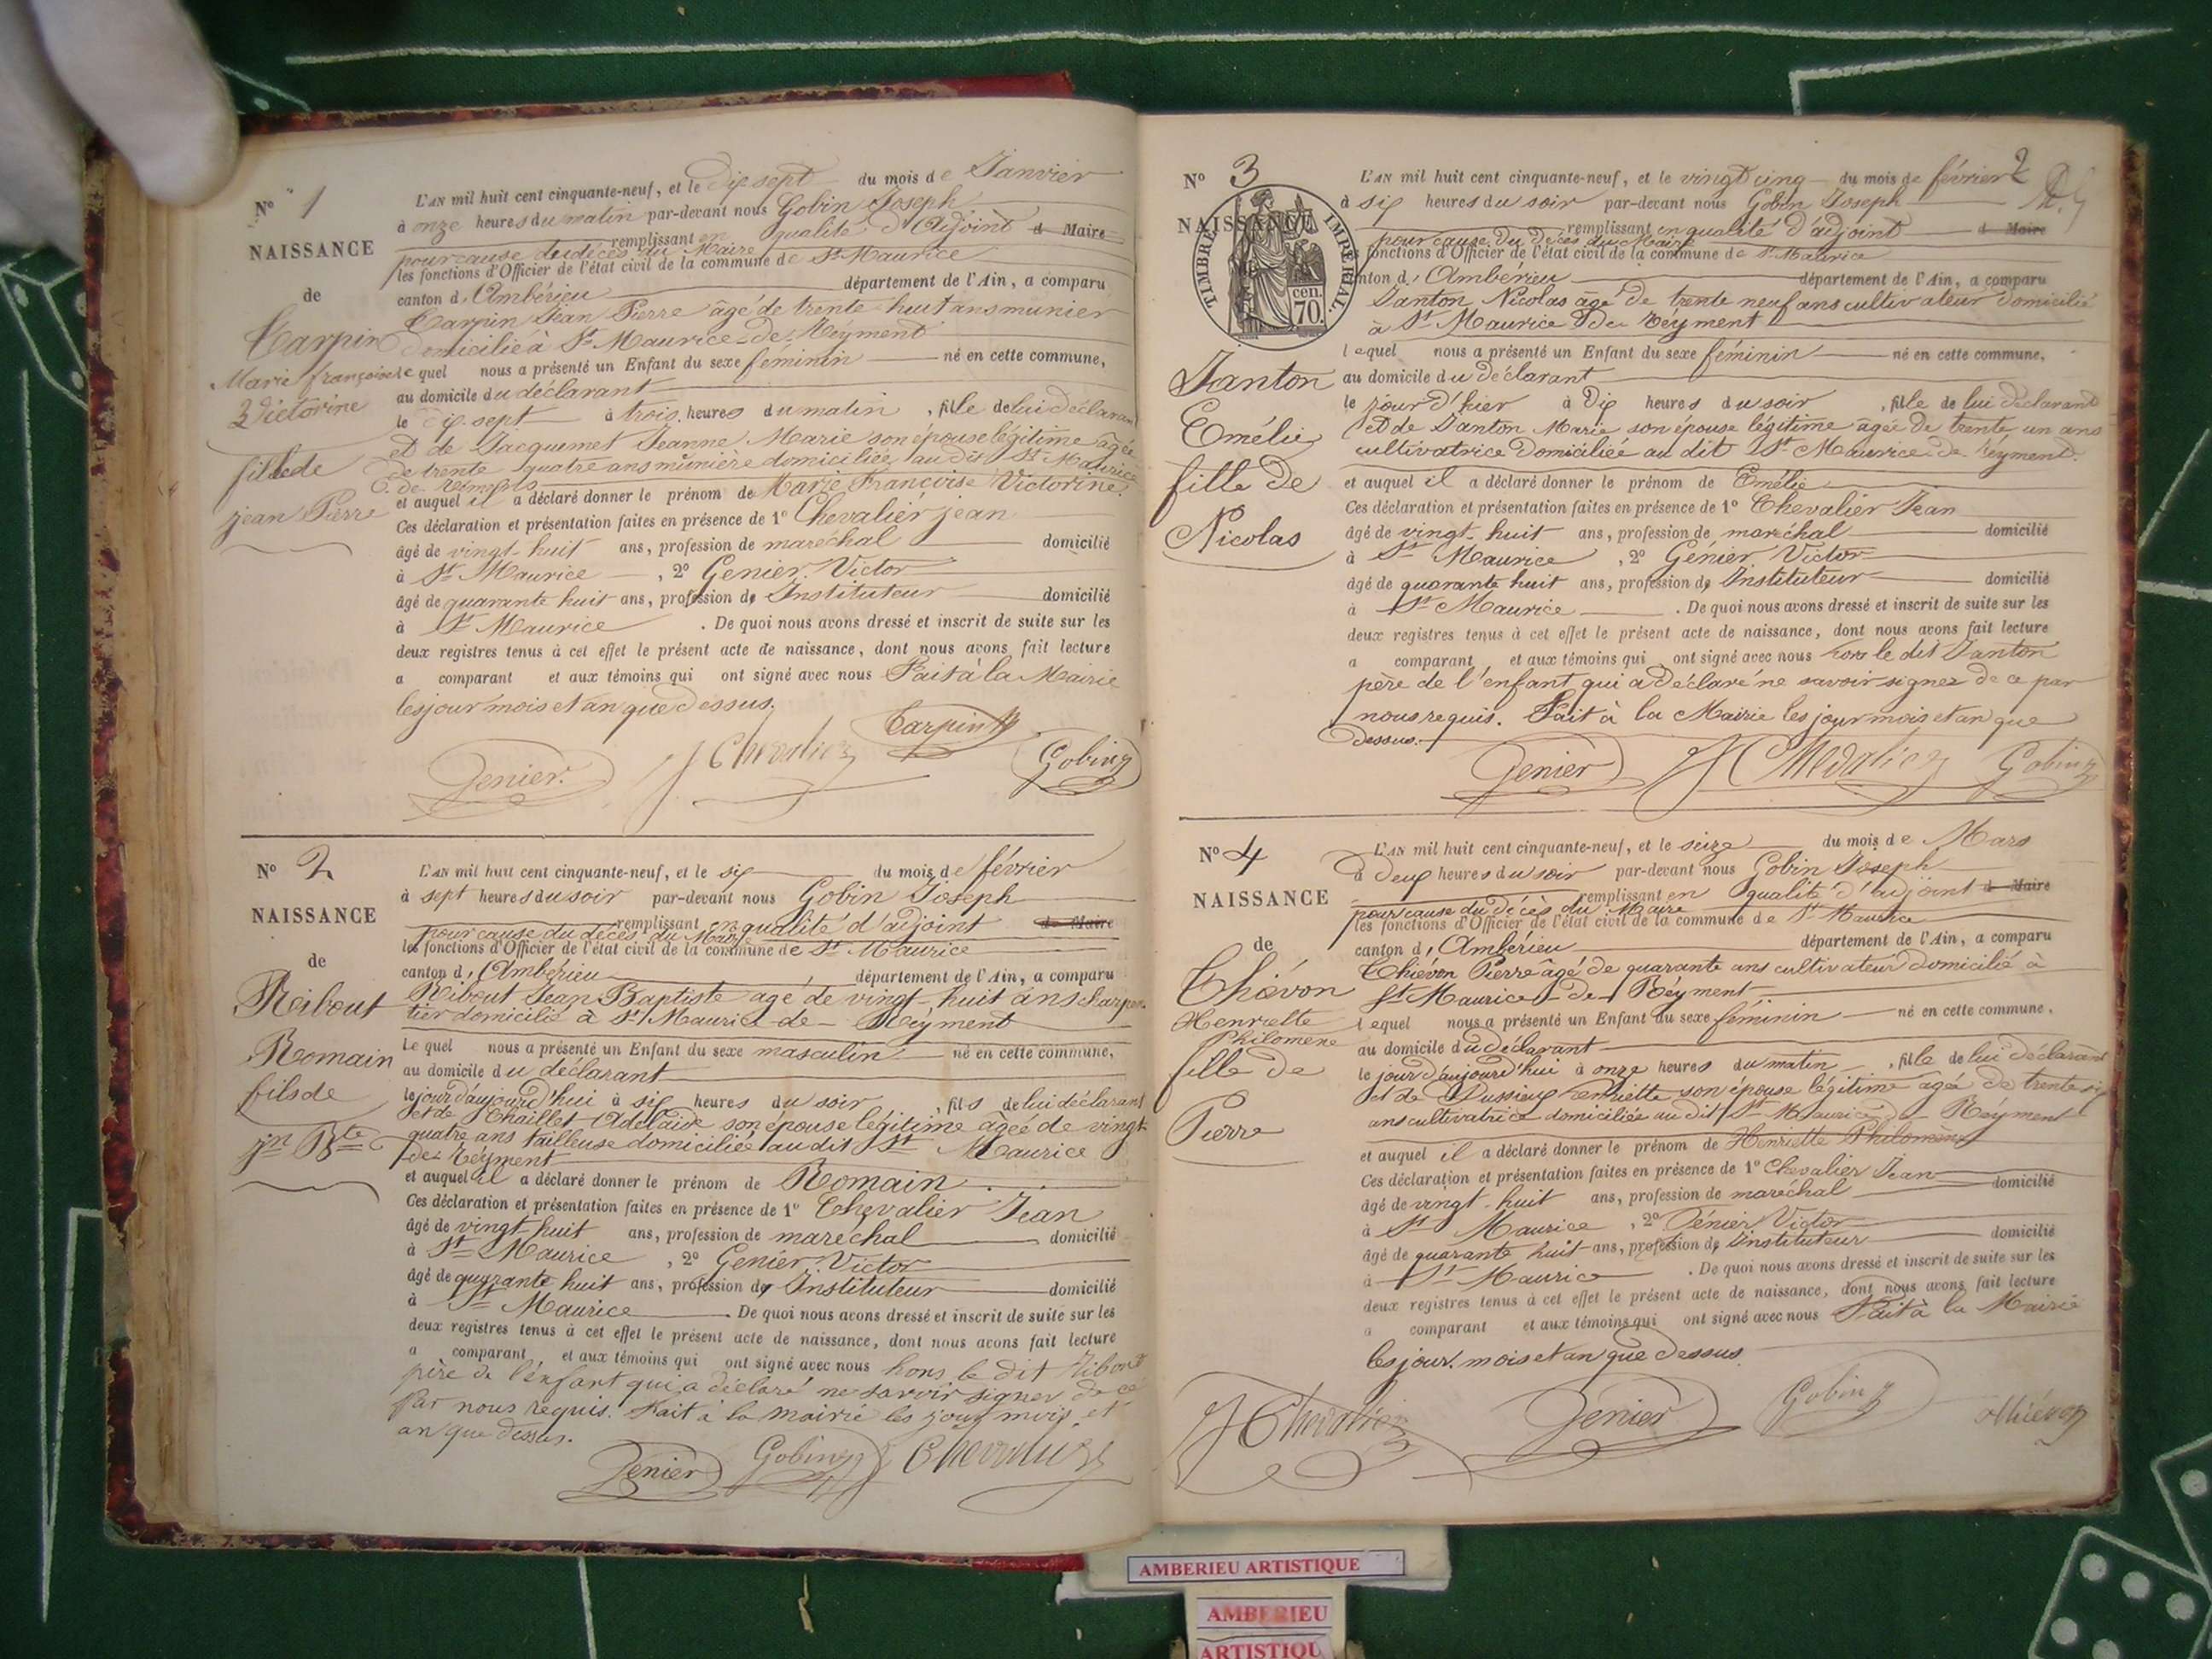 N° 1
NAISSANCE
de
Carpin
Marie françoise
Victorine
fille de
jean Pierre
L'AN mil huit cent cinquante-neuf, et le dix sept du mois de Janvier
à onze heures du matin par-devant nous Gobin Joseph
remplissant en qualité d'Adjoint d Maire
pour cause du décès du Maire
les fonctions d'Officier de l'état civil de la commune de St Maurice
canton d'Ambérieu département de l'Ain, a comparu
Carpin Jean Pierre âgé de trente huit ans munier
domicilié à St Maurice-de-Réyment
lequel nous a présenté un Enfant du sexe feminin né en cette commune,
au domicile du déclarant
le dix sept à trois heures du matin, fille de lui déclarant
et de Jacquemet Jeanne Marie son épouse légitime agée
de trente quatre ans munière domiciliée au dit St Maurice
de
et auquel il a déclaré donner le prénom de Marie Françoise Victorine.
Ces déclaration et présentation faites en présence de 1° Chevalier jean
âgé de vingt-huit ans, profession de maréchal domicilié
à St Maurice, 2° Genier Victor
âgé de quarante huit ans, profession d' Instituteur domicilié
à St Maurice. De quoi nous avons dressé et inscrit de suite sur les
deux registres tenus à cet effet le présent acte de naissance, dont nous avons fait lecture
a comparant et aux témoins qui ont signé avec nous Fait à la Mairie
les jour mois et an que dessus.
Carpin
Genier. J Chevalier Gobin
N° 2
NAISSANCE
de
Ribout
Romain
fils de
jn Bte
L'AN mil huit cent cinquante-neuf, et le six du mois de février
à sept heures du soir par-devant nous Gobin Joseph
remplissant en qualité d'adjoint de Maire
pour cause du décès du Maire
les fonctions d'Officier de l'état civil de la commune de St Maurice
canton d'Ambérieu département de l'Ain, a comparu
Ribout Jean Baptiste agé de vingt-huit ans charpen-
tier domicilié à St Maurice-de-Réyment
Le quel nous a présenté un Enfant du sexe masculin né en cette commune,
au domicile du déclarant
le jour d'aujourd'hui à six heures du soir, fils de lui déclarant
et de Chaillet Adélaïde son épouse légitime agée de vingt
quatre ans tailleuse domiciliée au dit St Maurice
de Réyment
et auquel il a déclaré donner le prénom de Romain
Ces déclaration et présentation faites en présence de 1° Chevalier Jean
âgé de vingt-huit ans, profession de maréchal domicilié
à St Maurice, 2° Genier Victor
âgé de quarante huit ans, profession d' Instituteur domicilié
à St Maurice. De quoi nous avons dressé et inscrit de suite sur les
deux registres tenus à cet effet le présent acte de naissance, dont nous avons fait lecture
a comparant et aux témoins qui ont signé avec nous hors le dit Ribout
père de l'enfant qui a déclaré ne savoir signer de ce
par nous requis. Fait à la mairie les jour, mois et
an que dessus.
Genier Gobin Chevalier
N° 3
NAISSANCE
TIMBRE IMPERIAL.
cen.
70.
Janton
Emélie
fille de
Nicolas
L'AN mil huit cent cinquante-neuf, et le vingt cinq du mois de février 2
à six heures du soir par-devant nous Gobin Joseph
remplissant en qualité d'adjoint d Maire
pour cause du décès du Maire
fonctions d'Officier de l'état civil de la commune de St Maurice
canton d'Ambérieu département de l'Ain, a comparu
Janton Nicolas âgé de trente neuf ans cultivateur domicilié
à St Maurice de Réyment
lequel nous a présenté un Enfant du sexe féminin né en cette commune,
au domicile du déclarant
le jour d'hier à dix heures du soir, fille de lui déclarant
et de Janton Marie son épouse légitime âgée de trente un ans
cultivatrice domiciliée au dit St Maurice de Réyment.
et auquel il a déclaré donner le prénom de Emélie
Ces déclaration et présentation faites en présence de 1° Chevalier Jean
âgé de vingt-huit ans, profession de maréchal domicilié
à St Maurice, 2° Génier Victor
âgé de quarante huit ans, profession d' Instituteur domicilié
à St Maurice. De quoi nous avons dressé et inscrit de suite sur les
deux registres tenus à cet effet le présent acte de naissance, dont nous avons fait lecture
a comparant, et aux témoins qui ont signé avec nous hors le dit Janton
père de l'enfant qui a déclaré ne savoir signer de ce par
nous requis. Fait à la Mairie les jour mois et an que
dessus.
Genier J Chevalier Gobin
N° 4
NAISSANCE
de
Chiévon
Henriette
Philomène
fille de
Pierre
L'AN mil huit cent cinquante-neuf, et le seize du mois de Mars
à deux heures du soir par-devant nous Gobin Joseph
remplissant en qualité d'adjoint d Maire
pour cause du décès du Maire
les fonctions d'Officier de l'état civil de la commune de St Maurice
canton d'Ambérieu département de l'Ain, a comparu
Chiévon Pierre âgé de quarante ans cultivateur domicilié à
St Maurice-de-Réyment
lequel nous a présenté un Enfant du sexe féminin né en cette commune,
au domicile du déclarant
le jour d'aujourd'hui à onze heures du matin, fille de lui déclarant
et de Dussieux Henriette son épouse légitime agée de trente six
ans cultivatrice domiciliée au dit St-Maurice de Réyment
et auquel il a déclaré donner le prénom de Henriette Philomène
Ces déclaration et présentation faites en présence de 1° Chevalier Jean
âgé de vingt-huit ans, profession de maréchal domicilié
à St Maurice, 2° Génier Victor
âgé de quarante huit ans, profession d' Instituteur domicilié
à St Maurice. De quoi nous avons dressé et inscrit de suite sur les
deux registres tenus à cet effet le présent acte de naissance, dont nous avons fait lecture
a comparant et aux témoins qui ont signé avec nous Fait à la Mairie
les jour, mois et an que dessus.
J Chevalier Genier Gobin Chiévon
AMBERIEU ARTISTIQUE
AMBERIEU
ARTISTIQU